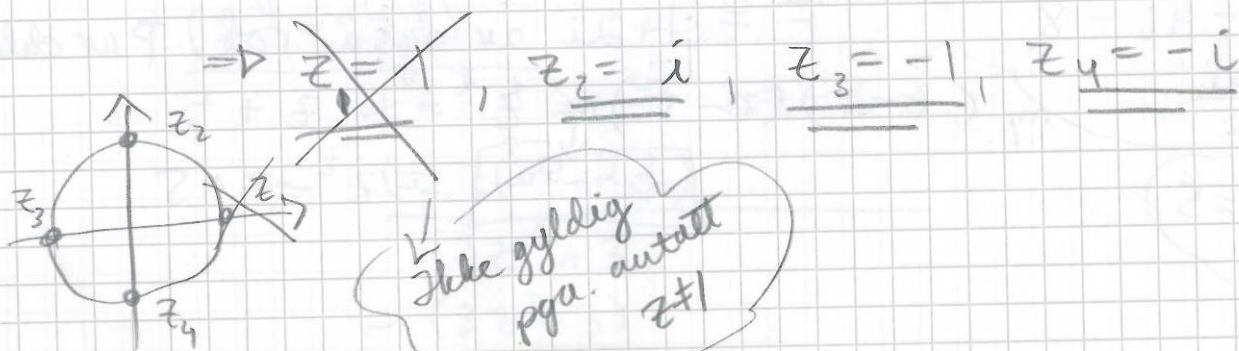 => z₁ = 1 , z₂ = i , z₃ = -1, z₄ = -i
z₂
z₃
z₁
z₄
Ikke gyldig
pga. antatt
z≠1